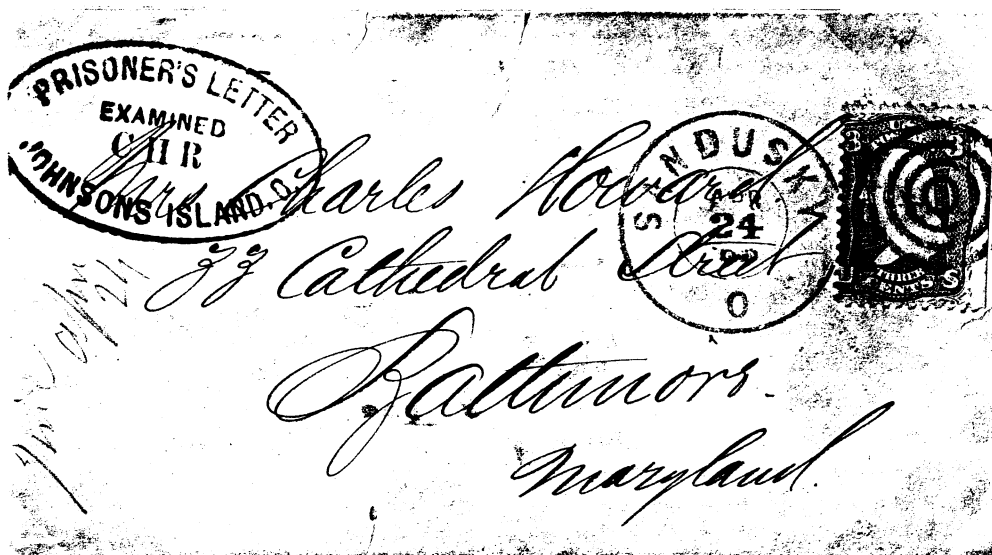 PRISONER'S LETTER
EXAMINED
C H R
JOHNSONS ISLAND. O.
SANDUSKY
APR
24
O
Mrs Charles Howard.
33 Cathedral Street
Baltimore.
Maryland.
apr
24